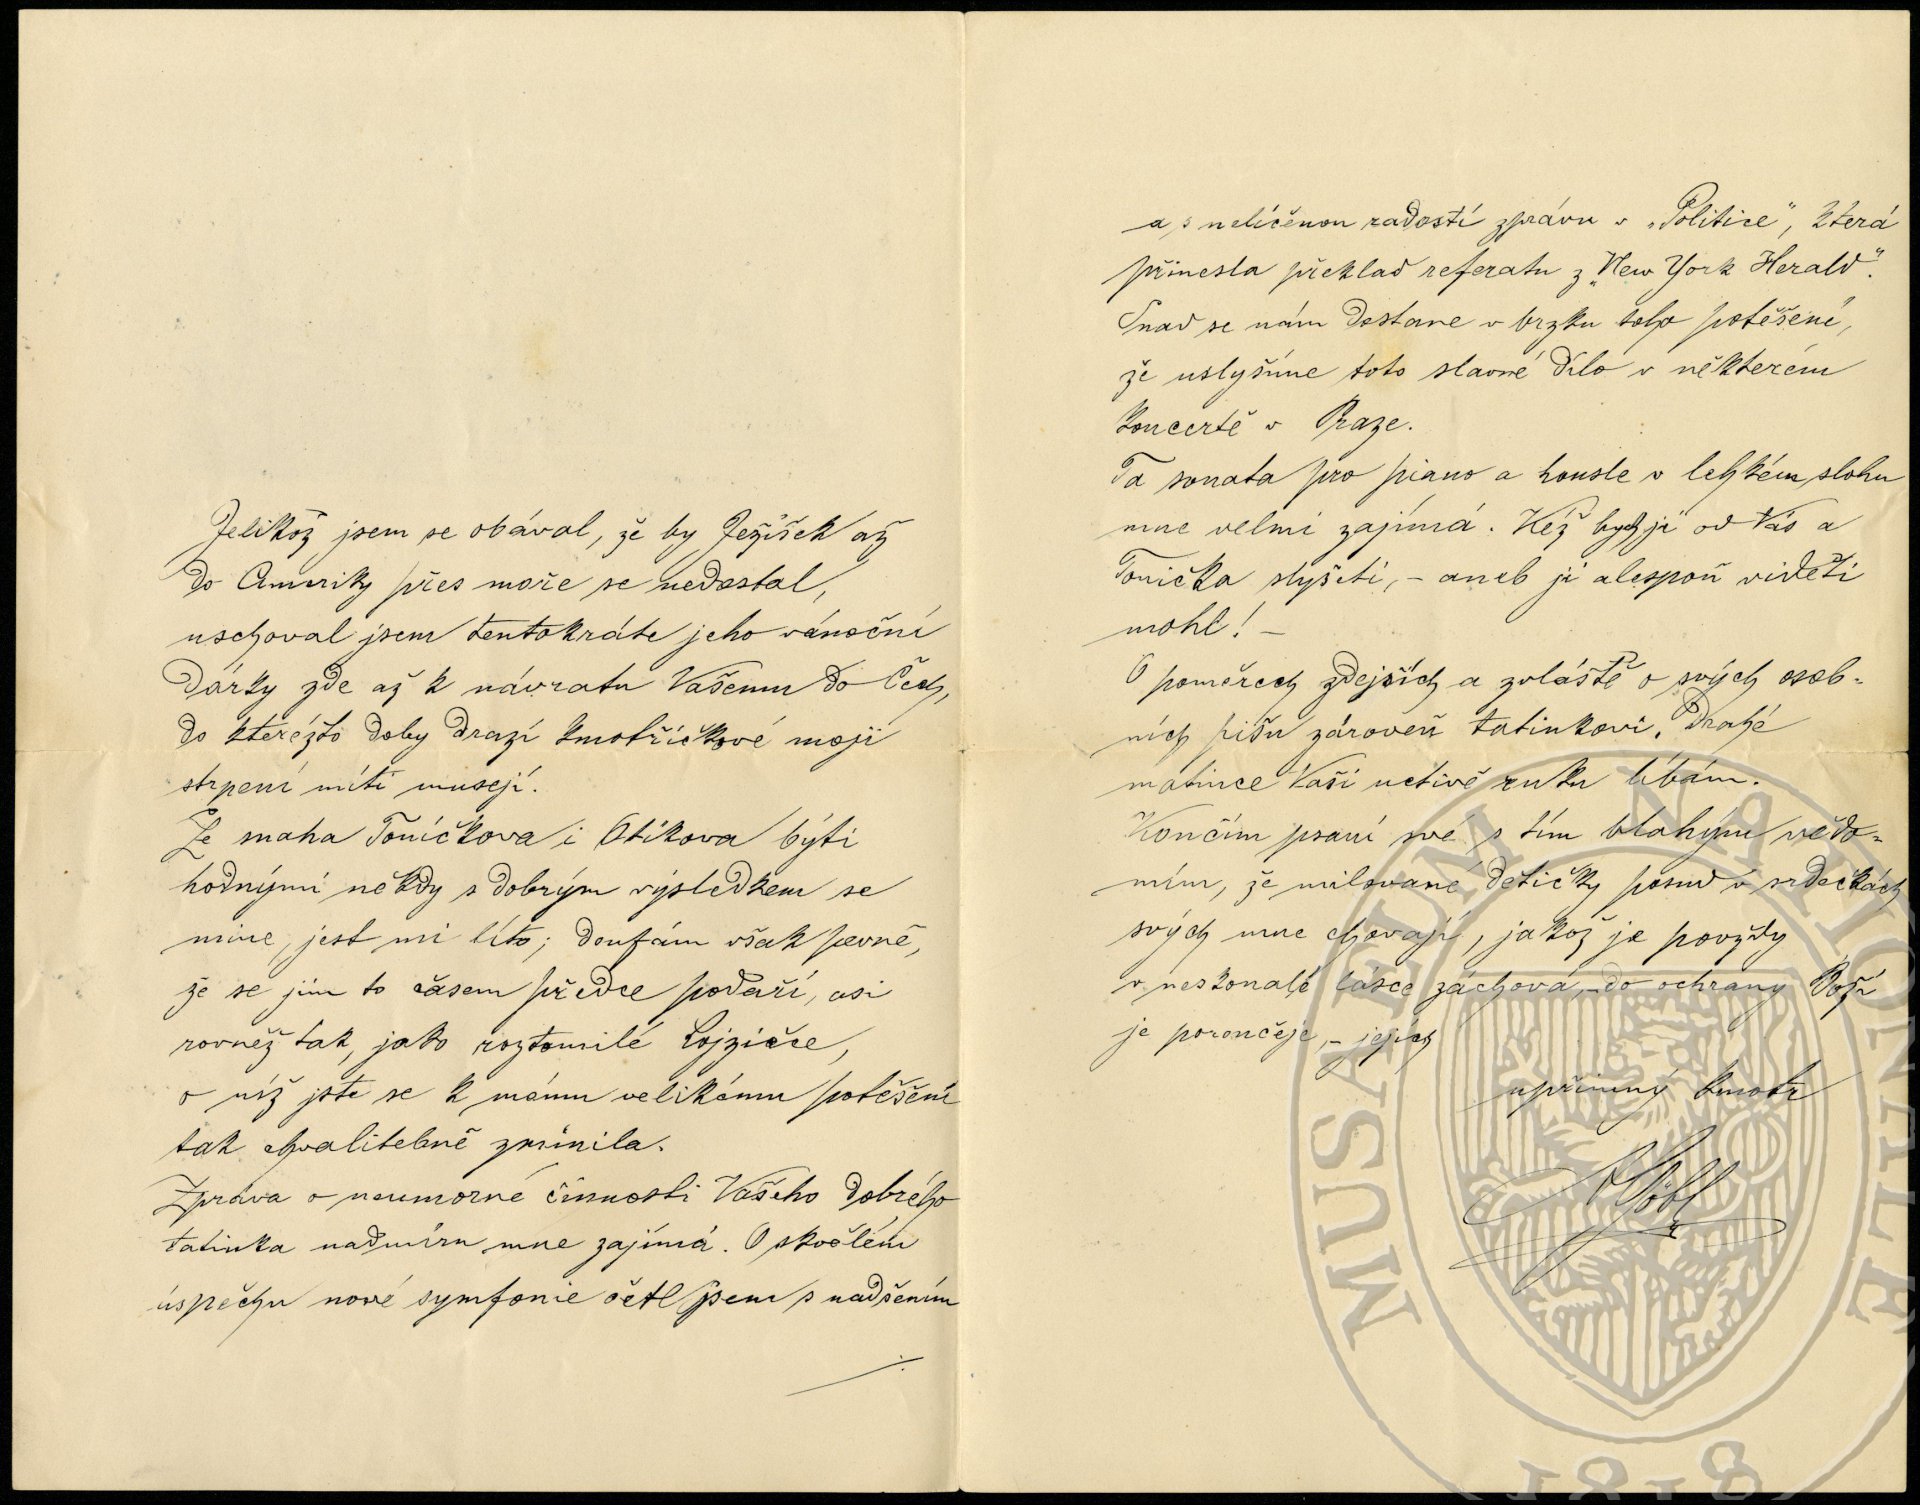 Jelikož jsem se obával, že by Ježíšek až
do Ameriky přes moře se nedostal,
uschoval jsem tentokráte jeho vánoční
dárky zde až k návratu Vašemu do Čech,
do kteréžto doby drazí kmotříčkové moji
strpení míti musejí.
Že snaha Toníčkova i Otíkova býti
hodnými někdy s dobrým výsledkem se
mine, jest mi líto; doufám však pevně,
že se jim to časem předce podaří, asi
rovněž tak, jako roztomilé Lojzičce,
o níž jste se k mému velikému potěšení
tak chvalitebně zmínila.
Zpráva o neumorné činnosti Vašeho dobrého
tatínka nadmíru mne zajímá. O skvělém
úspěchu nové symfonie četl jsem s nadšením
./.
a s nelíčenou radostí zprávu v „Politice", která
přinesla překlad referatu z „New York Herald".
Snad se nám dostane v brzku toho potěšení,
že uslyšíme toto slavné dílo v některém
koncertě v Praze.
Ta sonata pro piano a housle v lehkém slohu
mne velmi zajímá. Kéž bych ji od Vás a
Tonička slyšeti, – aneb ji alespoň viděti
mohl! –
O poměrech zdejších a zvláště o svých osob=
ních píšu zároveň tatínkovi. Drahé
matince Vaší uctivě ruku líbám.
Končím psaní své s tím blahým vědo=
mím, že milované dětičky posud v srdečkách
svých mne chovají, jakož je povždy
v neskonalé lásce záchová, – do ochrany Boží
je poroučeje, – jejich
upřímný kmotr
Göbl
MUSAEUM NATIONALE
1818